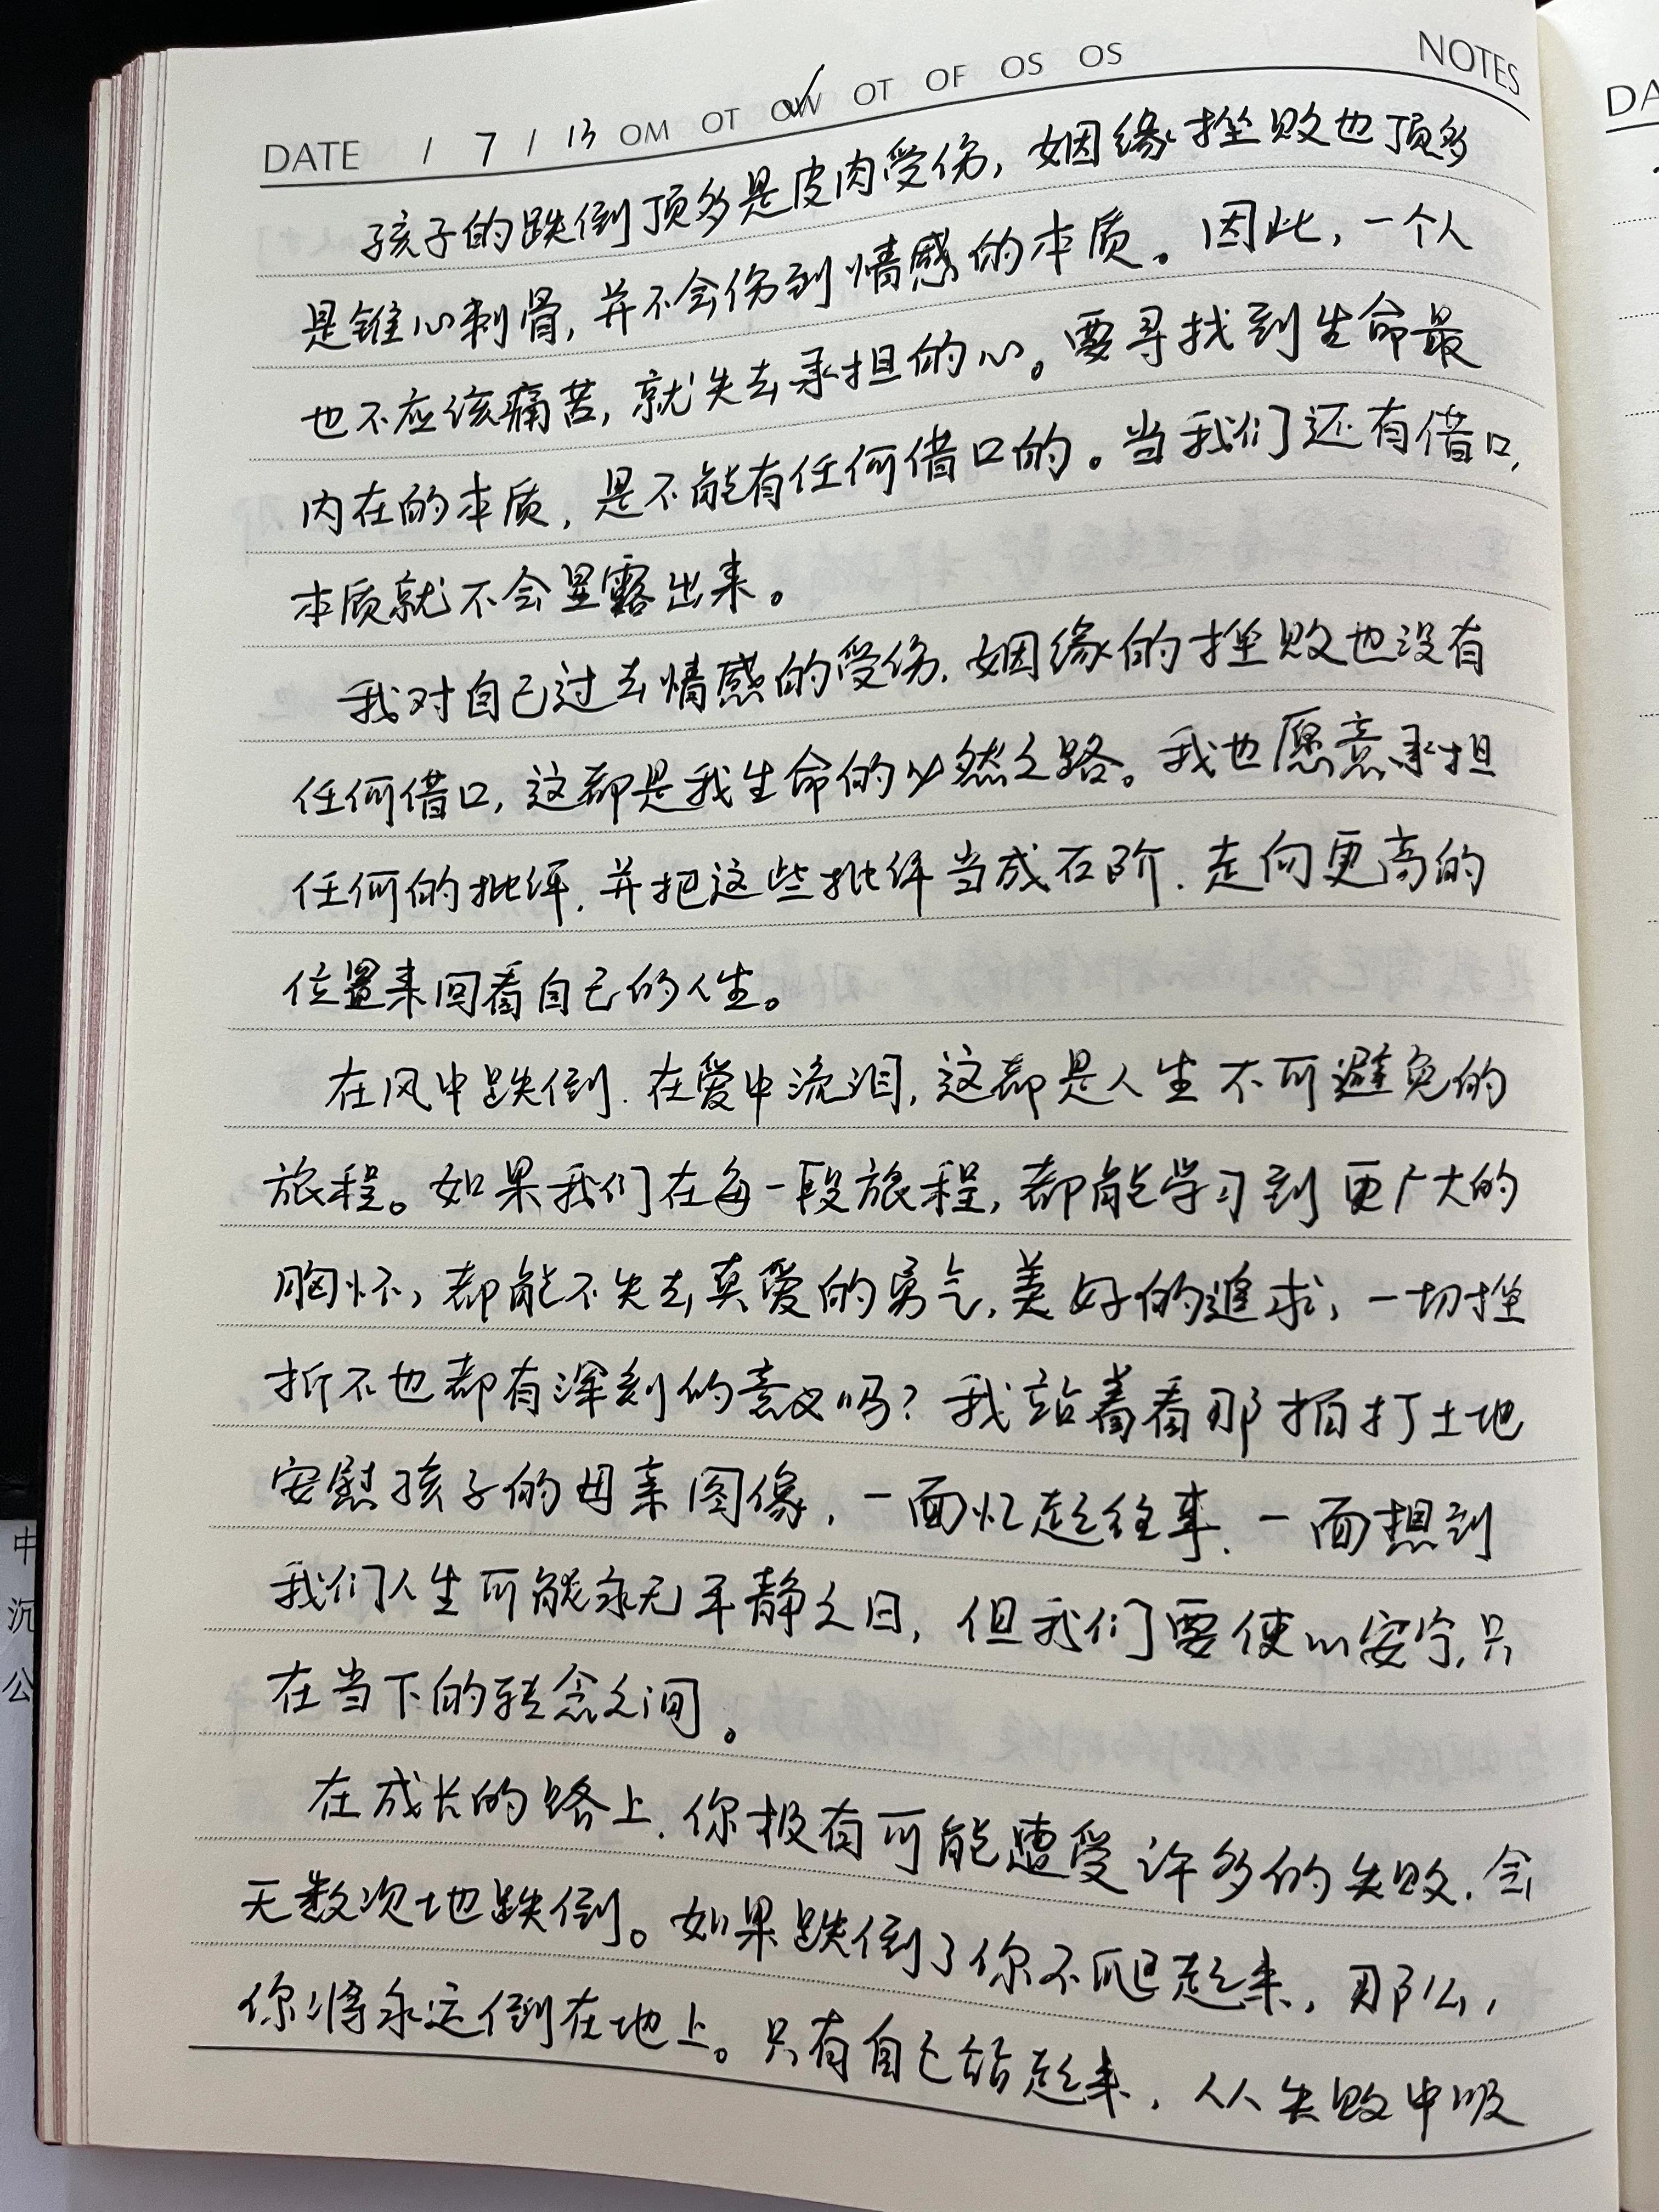 DATE / 7 / 13 OM OT OW OT OF OS OS NOTES
孩子的跌倒顶多是皮肉受伤，姻缘挫败也顶多
是锥心刺骨，并不会伤到情感的本质。因此，一个人
也不应该痛苦，就失去承担的心。要寻找到生命最
内在的本质，是不能有任何借口的。当我们还有借口，
本质就不会显露出来。
我对自己过去情感的受伤，姻缘的挫败也没有
任何借口，这都是我生命的必然之路。我也愿意承担
任何的批评，并把这些批评当成石阶，走向更高的
位置来回看自己的人生。
在风中跌倒，在爱中流泪，这都是人生不可避免的
旅程。如果我们在每一段旅程，都能学习到更广大的
胸怀，都能不失去真爱的勇气，美好的追求，一切挫
折不也都有深刻的意义吗？我站着看那拍打土地
安慰孩子的母亲图像，一面忆起往事，一面想到
我们人生可能永无平静之日，但我们要使心安宁，只
在当下的转念之间。
在成长的路上，你极有可能遭受许多的失败，会
无数次地跌倒。如果跌倒了你不爬起来，那么，
你将永远倒在地上。只有自己站起来，从失败中吸
DA
中
沉
公